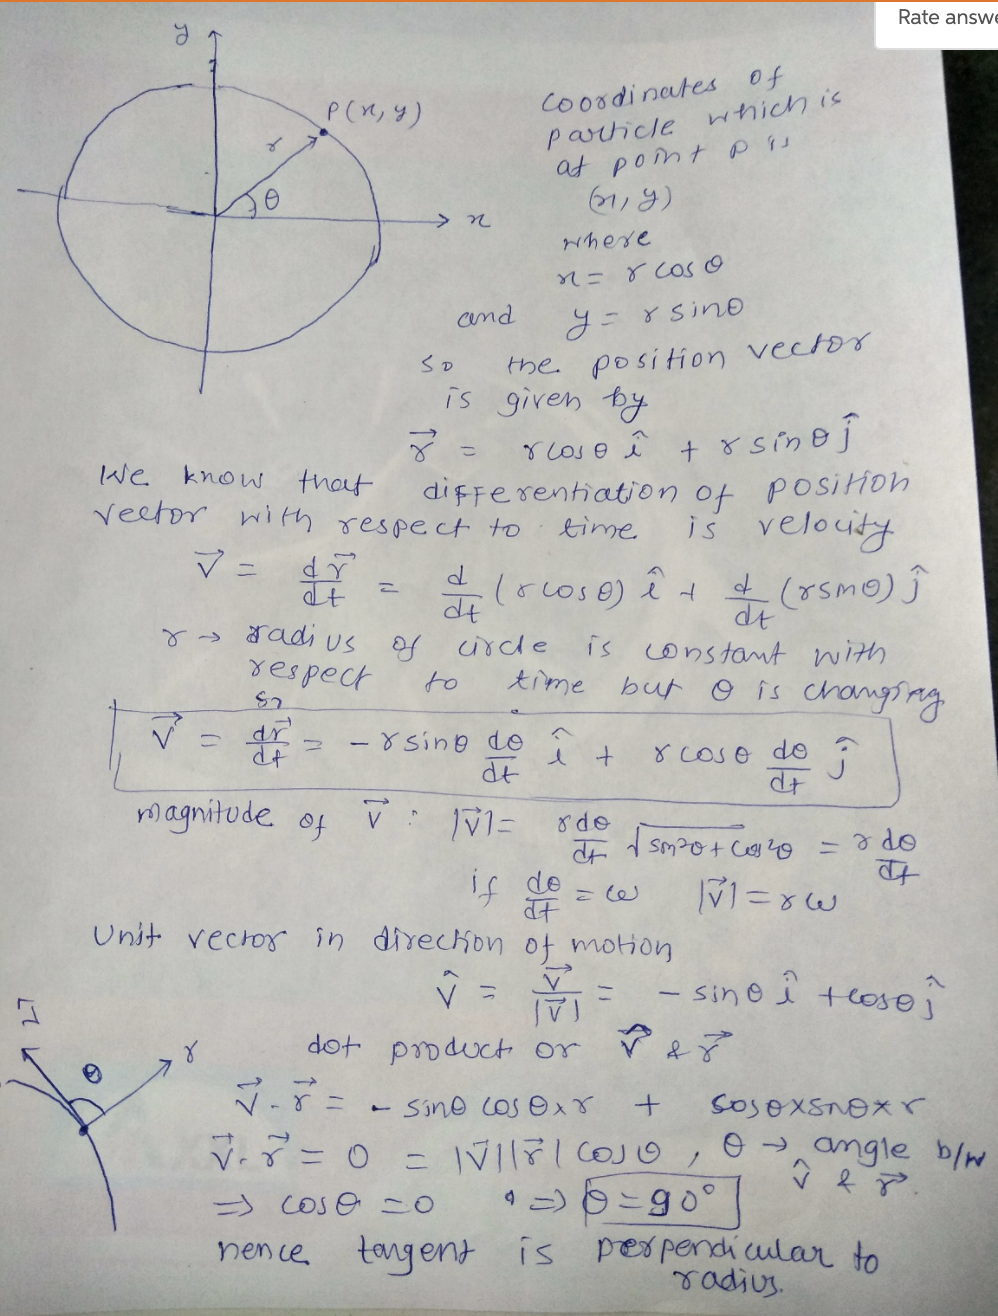 Rate answe
y
P(x, y)
r
θ
x
Coordinates of
particle which is
at point P is
(x, y)
where
x = r cos θ
and y = r sinθ
so the position vector
is given by
r⃗ = rcos θ î + r sin θ ĵ
We know that differentiation of position
vector with respect to time is velocity
v⃗ = dr⃗/dt = d/dt (r cos θ) î + d/dt (rsinθ) ĵ
r → radius of circle is constant with
respect to time but θ is changing
so
v⃗ = dr⃗/dt = - r sinθ dθ/dt î + r cos θ dθ/dt ĵ
magnitude of v⃗ : |v⃗| = r dθ/dt √sin²θ + cos²θ = r dθ/dt
if dθ/dt = ω |v⃗| = r ω
Unit vector in direction of motion
v̂ = v⃗/|v⃗| = - sin θ î + cos θ ĵ
v⃗
θ
r
dot product or v̂ & r⃗
v⃗ . r⃗ = - sinθ cos θ x r + cosθ x sinθ x r
v⃗ . r⃗ = 0 = |v⃗| |r⃗| cos θ , θ → angle b/w
v̂ & r⃗.
⇒ cos θ = 0 ⇒ θ = 90°
hence tangent is perpendicular to
radius.